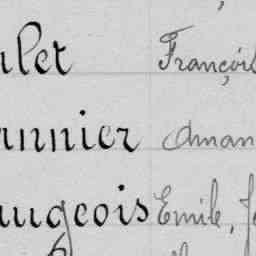 ulet Françoi
unnier Aman
augeois Emile, Je